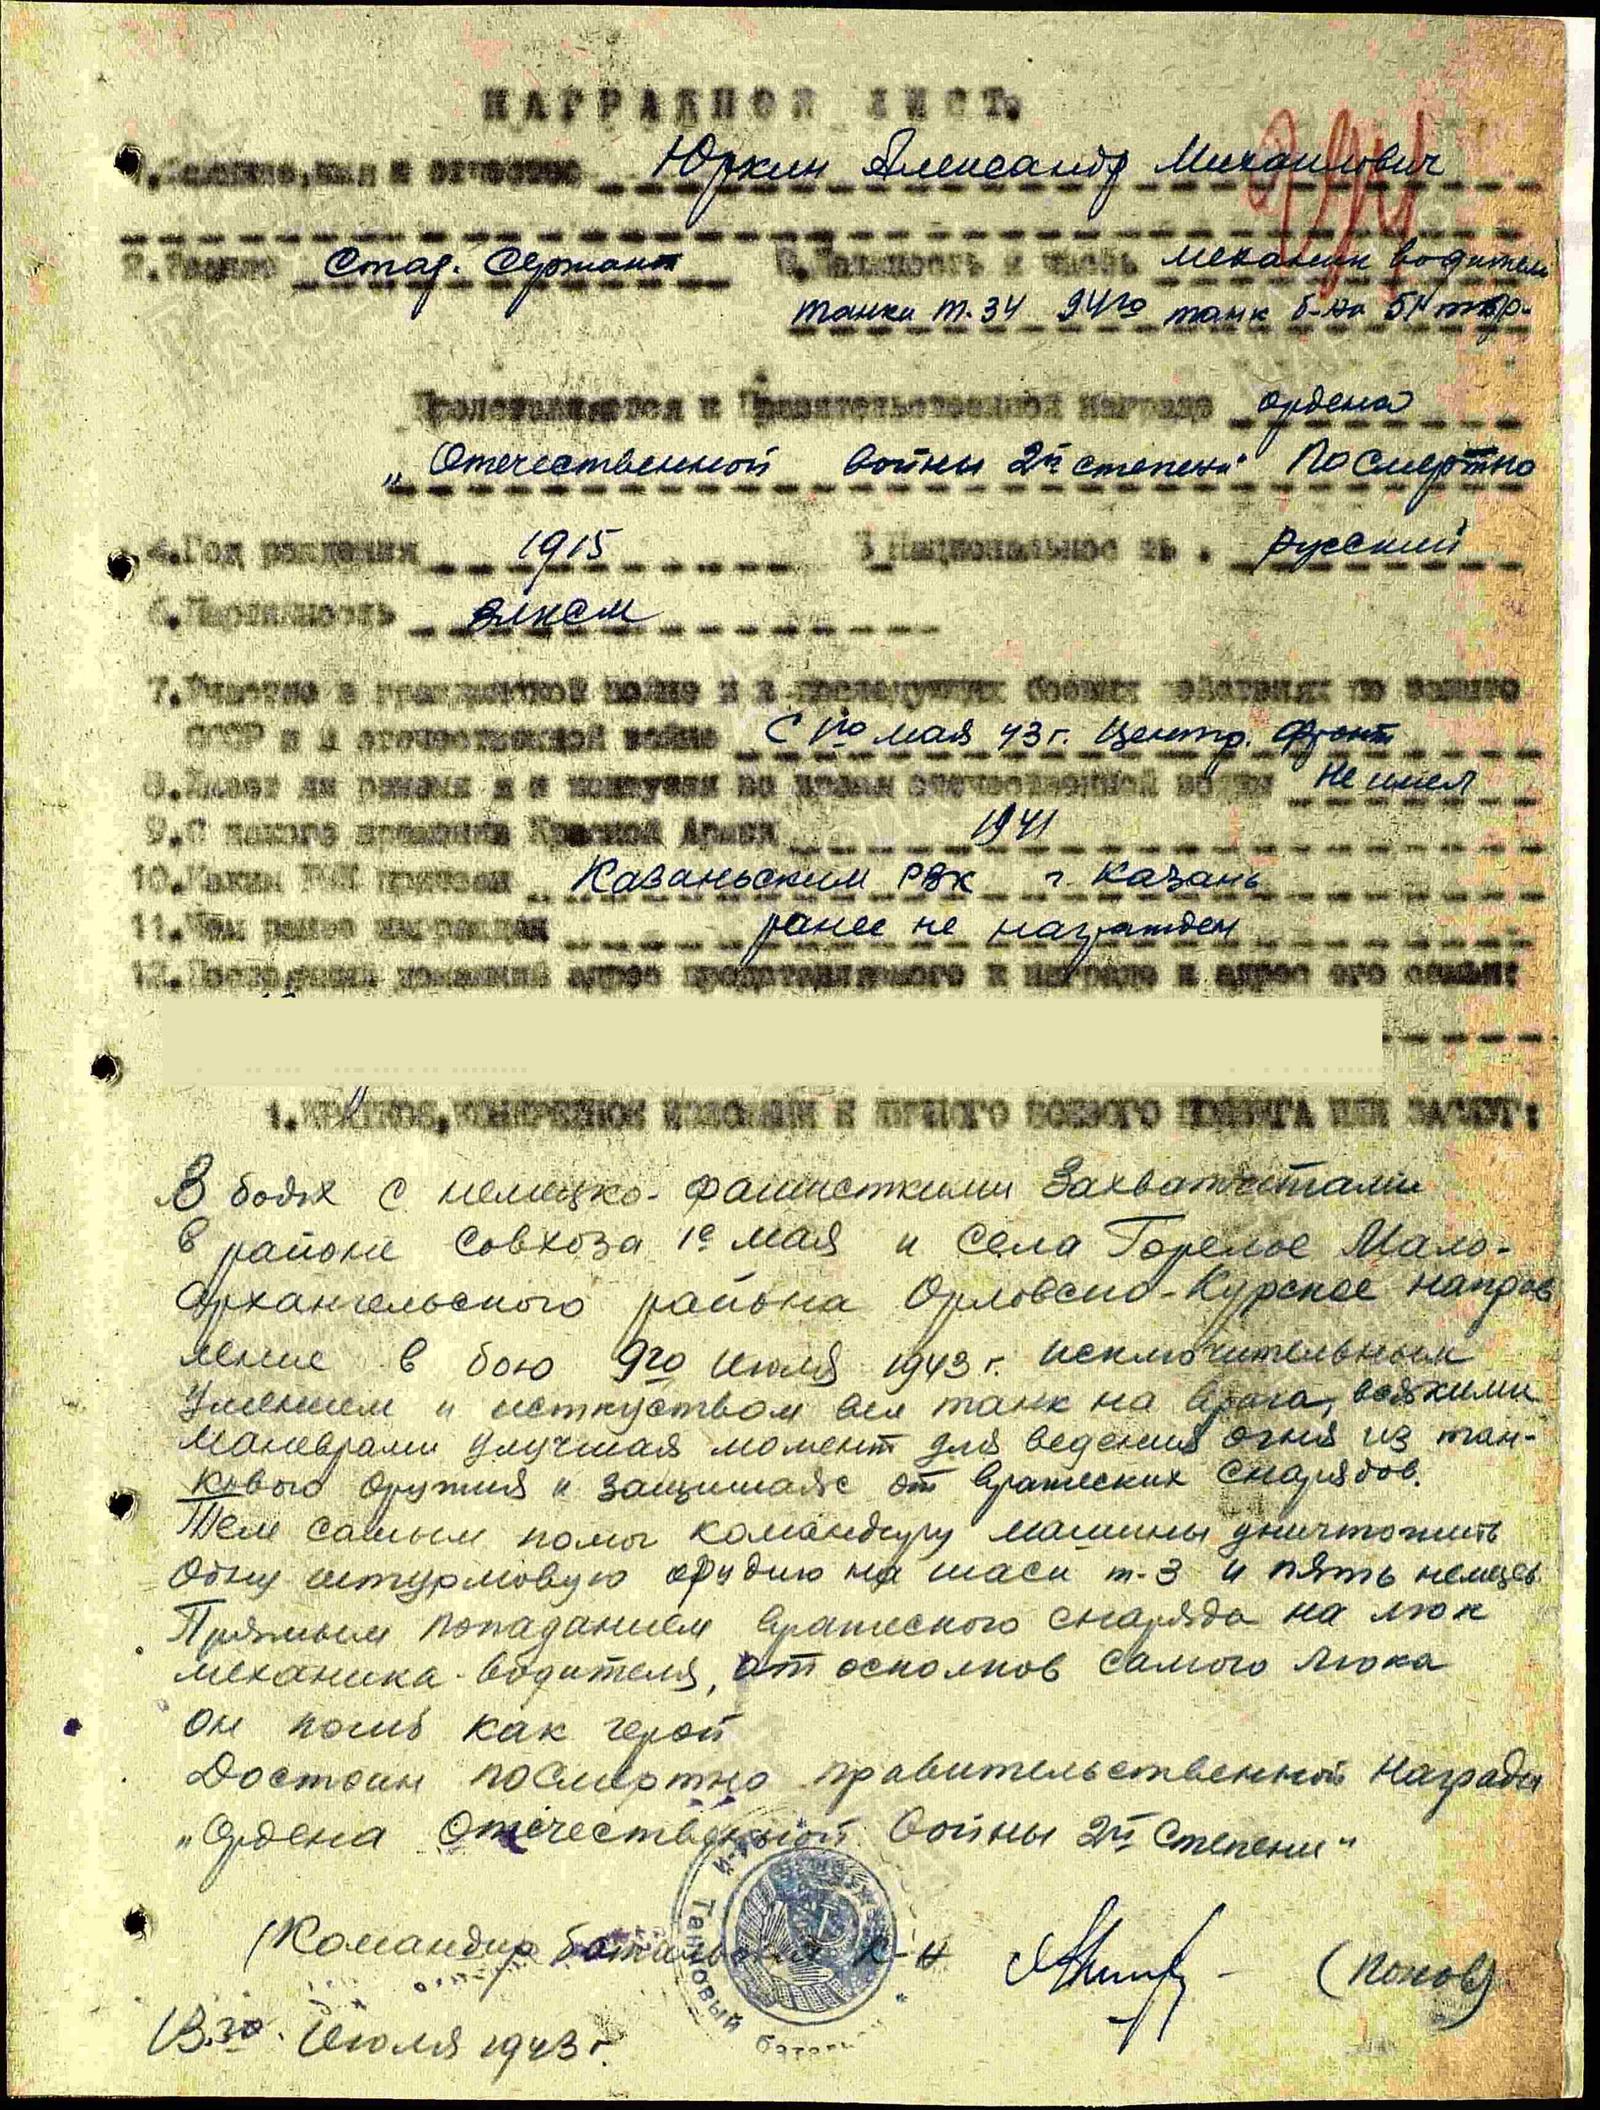 НАГРАДНОЙ ЛИСТ.
1. Фамилия, имя и отчество Юркин Александр Михайлович
2. Звание Стар. Сержант 3. Должность и часть механик водитель
танка т.34 94го танк б-на 51 тбр.
Представляется к Правительственной награде ордена
"Отечественной войны 2й степени" Посмертно
4. Год рождения 1915 5 Национальность . русский
6. Партийность ВЛКСМ
7. Участие в гражданской войне и в последующих боевых действиях по защите
СССР и в отечественной войне С 1го мая 43 г. Центр. Фронт
8. Имеет ли ранения и контузии во время отечественной войны Не имел
9. С какого времени в Красной Армии 1941
10. Каким РВК призван Казаньским РВК г. Казань
11. Чем ранее награжден ранее не награжден
12. Постоянный домашний адрес представляемого к награде и адрес его семьи:
1. КРАТКОЕ, КОНКРЕТНОЕ ИЗЛОЖЕНИЕ ЛИЧНОГО БОЕВОГО ПОДВИГА ИЛИ ЗАСЛУГ:
В боях с немецко-фашисткими Захватчитами
в районе Совхоза 1е мая и Села Горелое Мало-
Архангельского района Орловско-Курское направ
ление в бою 9го июля 1943 г. исключительным
Умением и исткуством вел танк на врага, всякими
маневрами улучшая момент для ведения огня из тан-
кового оружия и защищаяс от вражеских снарядов.
Тем самым помог командиру машины уничтожить
одну штурмовую орудию на шаси т-3 и пять немцев.
Прямым попаданием вражеского снаряда на люк
механика-водителя, от осколков самого люка
он погиб как герой
Достоин посмертно правительственной награды
"Ордена Отечественной Войны 2й Степени"
Командир батальона к-н (Попов)
Танковый батальон
13го Июля 1943 г.